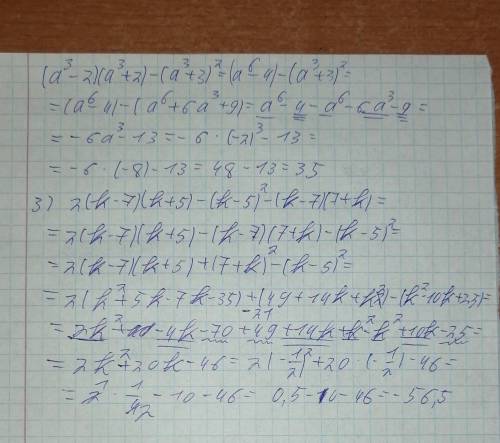 (a³-2)(a³+2)-(a³+3)²=(a⁶-4)-(a³+3)²=
=(a⁶-4)-(a⁶+6a³+9)=a⁶-4-a⁶-6a³-9=
=-6a³-13=-6·(-2)³-13=
=-6·(-8)-13=48-13=35
3) 2(k-7)(k+5)-(k-5)²-(k-7)(7+k)=
=2(k-7)(k+5)-(k-7)(7+k)-(k-5)²=
=2(k-7)(k+5)+(7+k)²-(k-5)²=
=2(k²+5k-7k-35)+(49+14k+k²)-(k²-10k+25)=
-21
=2k²-4k-70+49+14k+k²-k²+10k-25=
=2k²+20k-46=2(-1/2)²+20·(-1/2)-46=
=2·1/4-10-46=0,5-10-46=-56,5